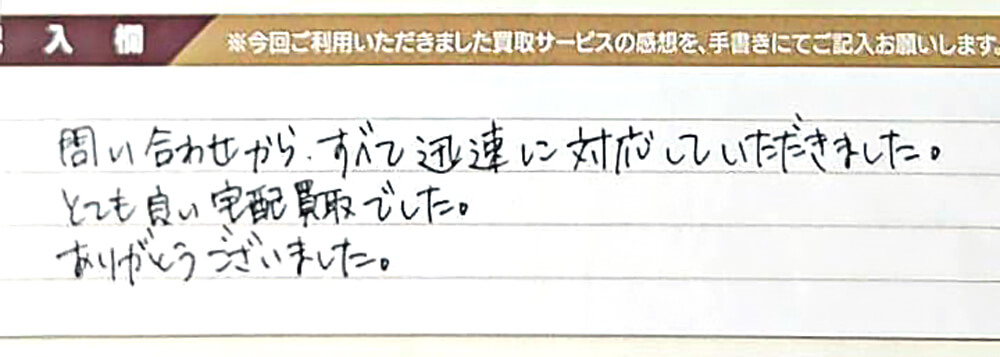 入欄
※今回ご利用いただきました買取サービスの感想を、手書きにてご記入お願いします。
問い合わせから、すべて迅速に対応していただきました。
とても良い宅配買取でした。
ありがとうございました。